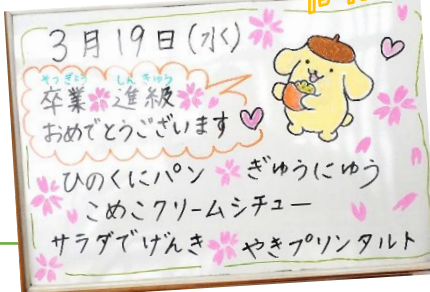 3月19日(水)
そつぎょう しんきゅう
卒業 進級
おめでとうございます
ひのくにパン ぎゅうにゅう
こめこクリームシチュー
サラダでげんき やきプリンタルト